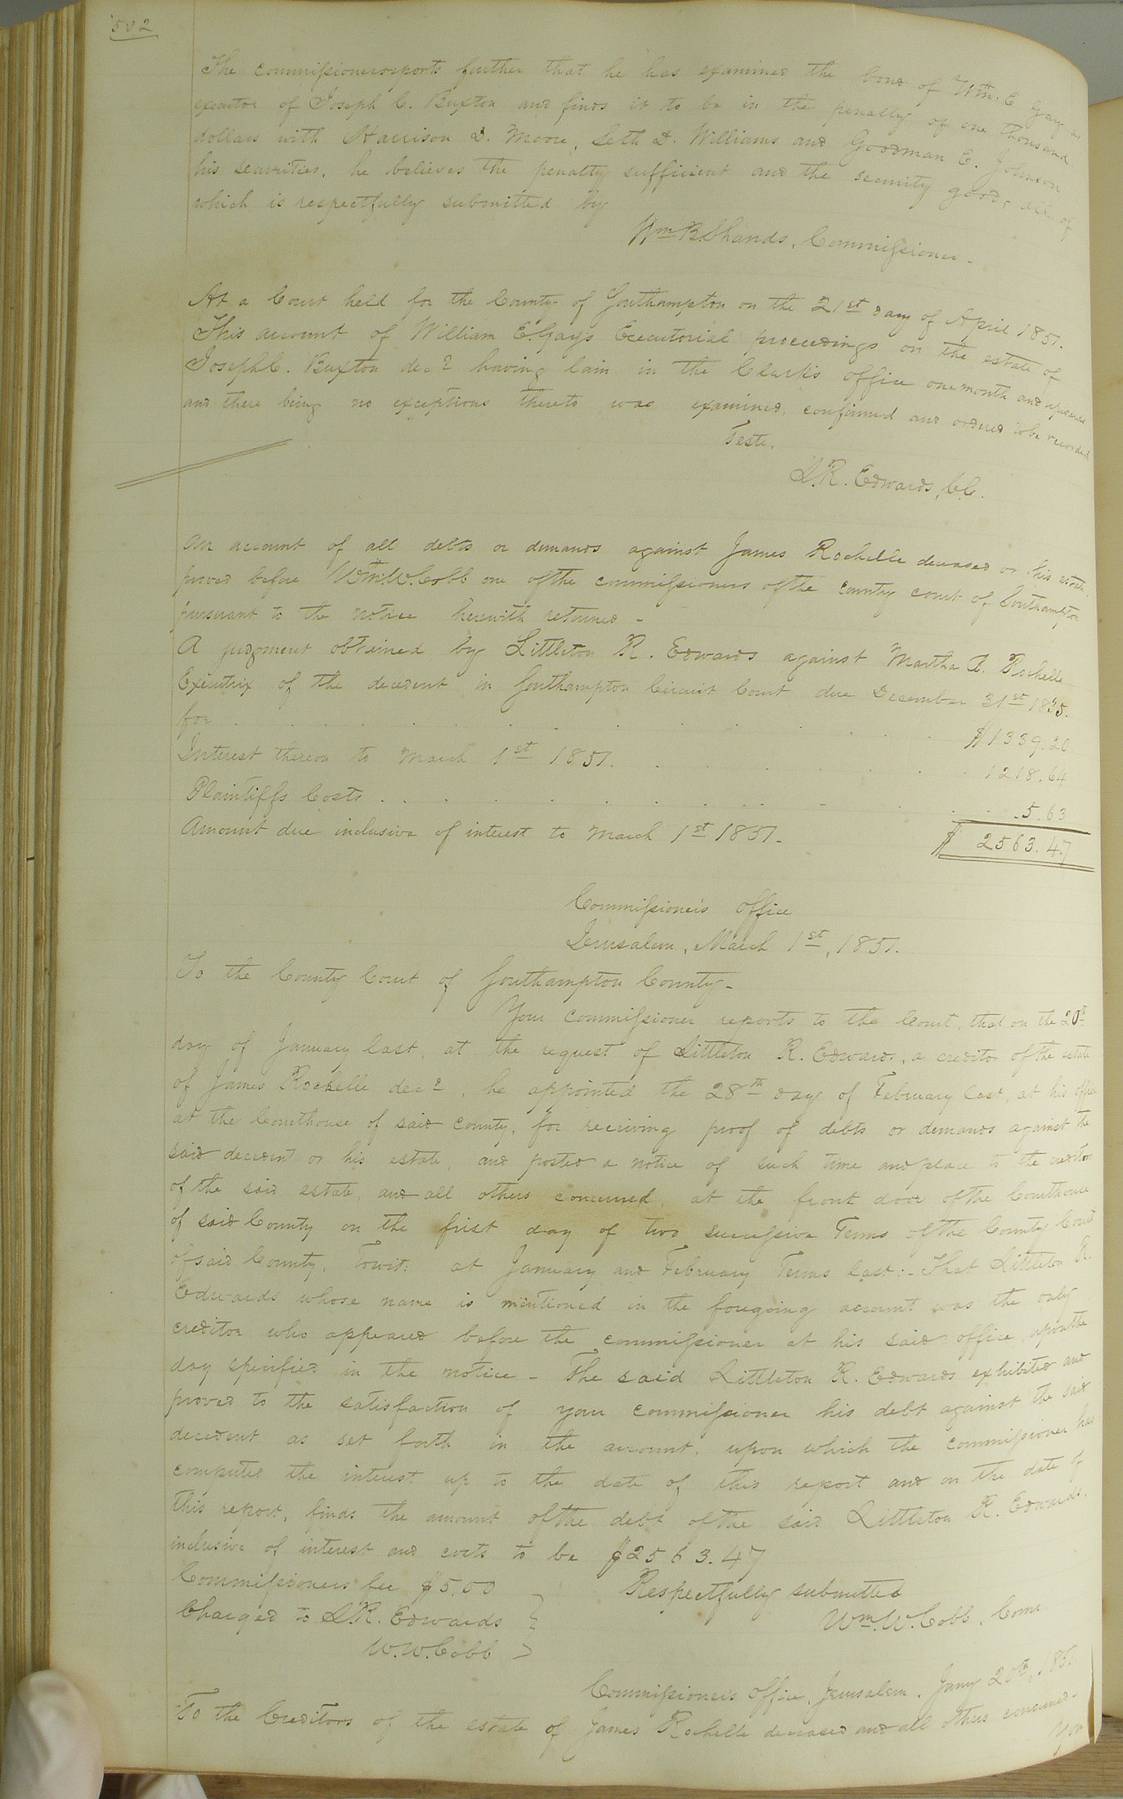 502
The commissioner reports further that he has examined the bond of Wm. E. Gay as
executor of Joseph C. Buxton and finds it to be in the penalty of one thousand
dollars with Harrison D. Moore, Seth D. Williams and Goodman E. Johnson
his securities, he believes the penalty sufficient and the security good, all of
which is respectfully submitted by
Wm B. Shands, Commissioner -
At a Court held for the County of Southampton on the 21st day of April 1851.
This account of William E. Gay's Executorial proceedings on the estate of
Joseph C. Buxton decd having lain in the Clerk's office one month and upwards
and there being no exceptions thereto was examined, confirmed and ordered to be recorded
Teste,
L.R. Edwards, C.C.
An account of all debts or demands against James Rochelle deceased or his estate
proved before Wm. W. Cobb one of the commissioners of the county court of Southampton
pursuant to the notice herewith returned -
A judgment obtained by Littleton R. Edwards against Martha A. Rochelle
Executrix of the decedent in Southampton Circuit Court due December 31st 1835.
for $1339.20
Interest thereon to March 1st 1851. 1218.64
Plaintiffs Costs 5.63
Amount due inclusive of interest to March 1st 1851. $2563.47
Commissioner's Office
Jerusalem, March 1st, 1851.
To the County Court of Southampton County -
Your commissioner reports to the Court, that on the 20th
day of January last, at the request of Littleton R. Edwards, a creditor of the estate
of James Rochelle decd, he appointed the 28th day of February last, at his office
at the Courthouse of said County, for receiving proof of debts or demands against the
said decedent or his estate, and posted a notice of such time and place to the creditors
of the said estate, and all others concerned, at the front door of the Courthouse
of said County on the first day of two successive Terms of the County Court
of said County, Towit: at January and February Terms last: - That Littleton R.
Edwards whose name is mentioned in the foregoing account was the only
creditor who appeared before the commissioner at his said office, upon the
day specified in the notice - The said Littleton R. Edwards exhibited and
proved to the satisfaction of your commissioner his debt against the said
decedent as set forth in the account, upon which the commissioner has
computed the interest up to the date of this report and on the date of
this report, finds the amount of the debt of the said Littleton R. Edwards,
inclusive of interest and costs to be $2563.47
Commissioners fee $5.00 Respectfully submitted
Charged to L.R. Edwards Wm. W. Cobb, Comr
W.W. Cobb
Commissioner's Office, Jerusalem, Jany 20th, 1851
To the Creditors of the estate of James Rochelle deceased and all others concerned -
You